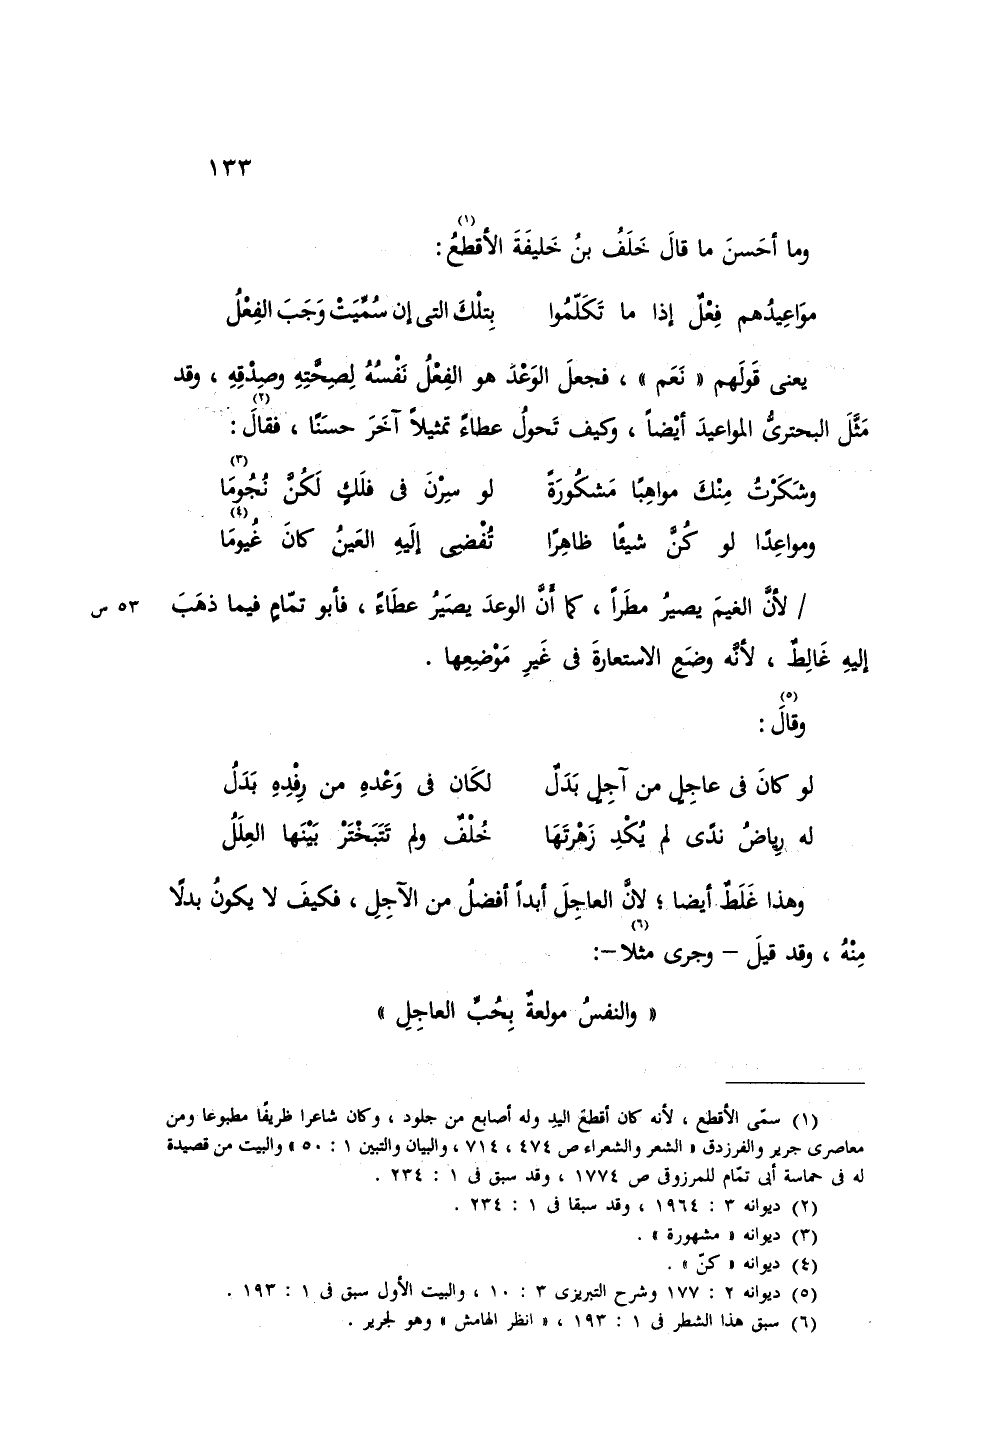 ١٣٣
وما أحَسنَ ما قالَ خَلَفُ بنُ خَليفَةَ الأقطعُ (١) :
موَاعِيدُهم فِعْلٌ إذا ما تَكَلّمُوا بِتلْكَ التى إن سُمِّيَتْ وَجَبَ الفِعْلُ
يعنى قَولَهم « نَعَم » ، فجعلَ الوَعْدَ هو الفِعْلُ نَفْسُهُ لِصِحَّتِهِ وصِدْقِهِ ، وقد
مَثَّلَ البحترىُّ المواعيدَ أيْضاً ، وكيف تَحولُ عطاءً تمثيلاً آخَرَ حسَنًا ، فقالَ (٢) :
وشَكَرْتُ مِنْكَ مواهِبًا مَشكُورَةً لو سِرْنَ فى فلَكٍ لَكُنَّ نُجُومَا (٣)
ومواعِدًا لو كُنَّ شيئًا ظاهِرًا تُفْضِى إلَيهِ العَينُ كانَ غُيومَا (٤)
/ لأنَّ الغيمَ يصيرُ مطَراً ، كما أنَّ الوعدَ يصَيَرُ عطَاءً ، فأبو تمّامٍ فيما ذهَبَ ٥٣ س
إليهِ غَالِطٌ ، لأنَّه وضَعَ الاستعارةَ فى غَيرِ مَوْضِعِها .
وقالَ (٥) :
لو كانَ فى عاجِلٍ من آجِلٍ بَدَلٌ لكَان فى وَعْدهِ من رِفْدِهِ بَدَلُ
له رِياضُ ندًى لم يُكْدِ زَهْرتَهَا خُلْفٌ ولم تَتَبَخْتَرْ بَيْنَها العِلَلُ
وهذا غَلَطٌ أيضا ؛ لانَّ العاجِلَ أبداً أفضلُ من الآجِلِ ، فكيفَ لا يكونُ بدلًا
مِنْهُ ، وقد قيلَ – وجرى مثلا (٦) –:
« والنفسُ مولعةٌ بِحُبِّ العاجِلِ »
(١) سمّى الأقطع ، لأنه كان أقطعَ اليدِ وله أصابع من جلود ، وكان شاعرا ظريفًا مطبوعا ومن
معاصرى جرير والفرزدق « الشعر والشعراء ص ٤٧٤ ، ٧١٤ ، والبيان والتبين ١ : ٥٠ » والبيت من قصيدة
له فى حماسة أبى تمّام للمرزوقى ص ١٧٧٤ ، وقد سبق فى ١ : ٢٣٤ .
(٢) ديوانه ٣ : ١٩٦٤ ، وقد سبقا فى ١ : ٢٣٤ .
(٣) ديوانه « مشهورة » .
(٤) ديوانه « كنّ » .
(٥) ديوانه ٢ : ١٧٧ وشرح التبريزى ٣ : ١٠ ، والبيت الأول سبق فى ١ : ١٩٣ .
(٦) سبق هذا الشطر فى ١ : ١٩٣ ، « انظر الهامش » وهو لجرير .